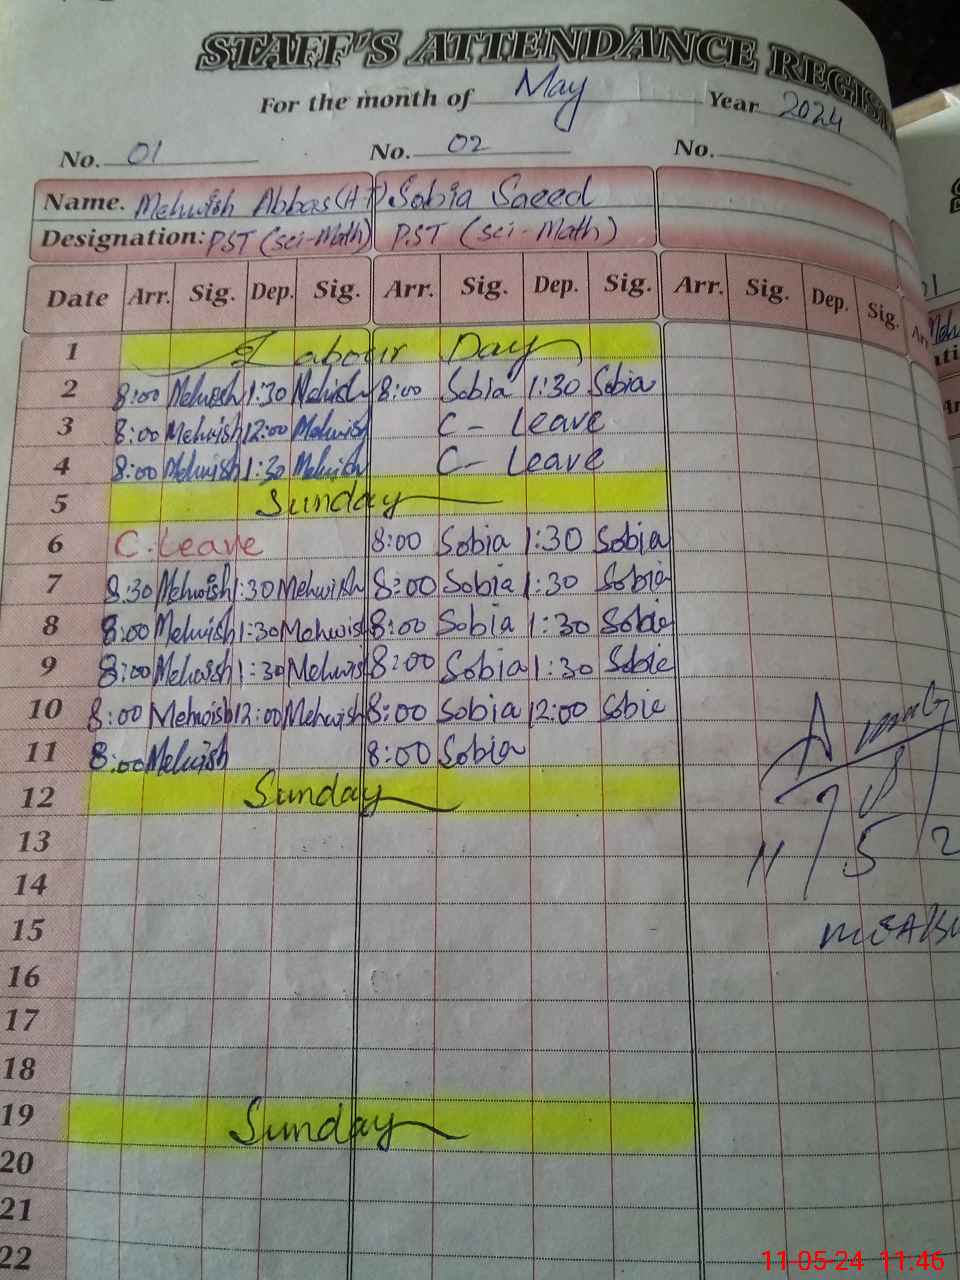 STAFF'S ATTENDANCE REGIS
For the month of May Year 2024
No. 01 No. 02 No.
Name. Mehwish Abbas (H T) Sobia Saeed
Designation: PST (sci-Math) P.ST (sci-Math)
Date Arr. Sig. Dep. Sig. Arr. Sig. Dep. Sig. Arr. Sig. Dep. Sig.
1 Labour Day
2 8:00 Mehwish 1:30 Mehwish 8:00 Sobia 1:30 Sobia
3 8:00 Mehwish 12:00 Mehwish C- Leave
4 8:00 Mehwish 1:30 Mehwish C- Leave
5 Sunday
6 C.Leave 8:00 Sobia 1:30 Sobia
7 8:30 Mehwish 1:30 Mehwish 8:00 Sobia 1:30 Sobia
8 8:00 Mehwish 1:30 Mehwish 8:00 Sobia 1:30 Sobia
9 8:00 Mehwish 1:30 Mehwish 8:00 Sobia 1:30 Sobia
10 8:00 Mehwish 12:00 Mehwish 8:00 Sobia 12:00 Sobia
11 8:00 Mehwish 8:00 Sobia
12 Sunday
13
14 11/5/2
15
16
17
18
19 Sunday
20
21
22
11-05-24 11:46